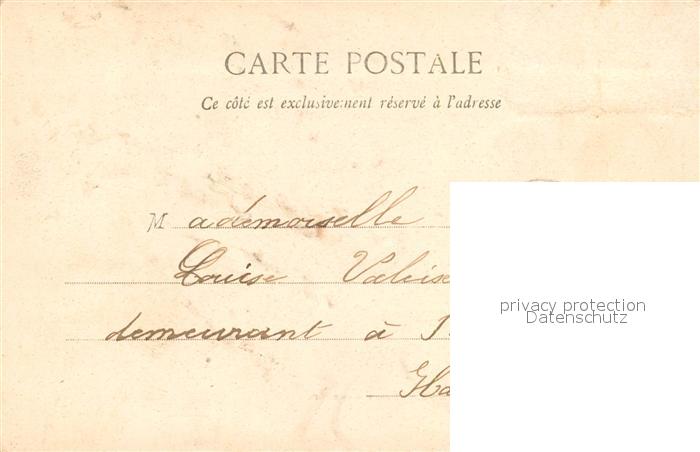 CARTE POSTALE
Ce côté est exclusivement réservé à l'adresse
Mademoiselle
Louise
demeurant à
privacy protection
Datenschutz